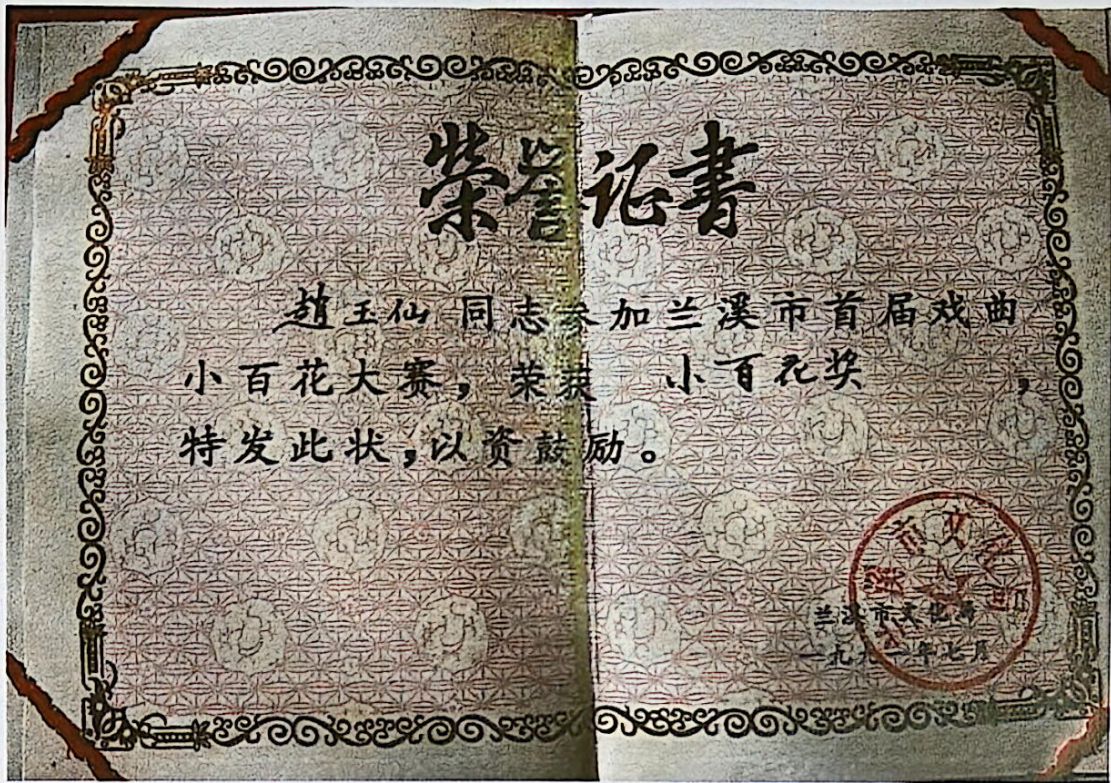 荣誉证书
赵玉仙 同志参加兰溪市首届戏曲
小百花大赛，荣获 小百花奖 ，
特发此状，以资鼓励。
兰溪市文化局
一九九一年七月